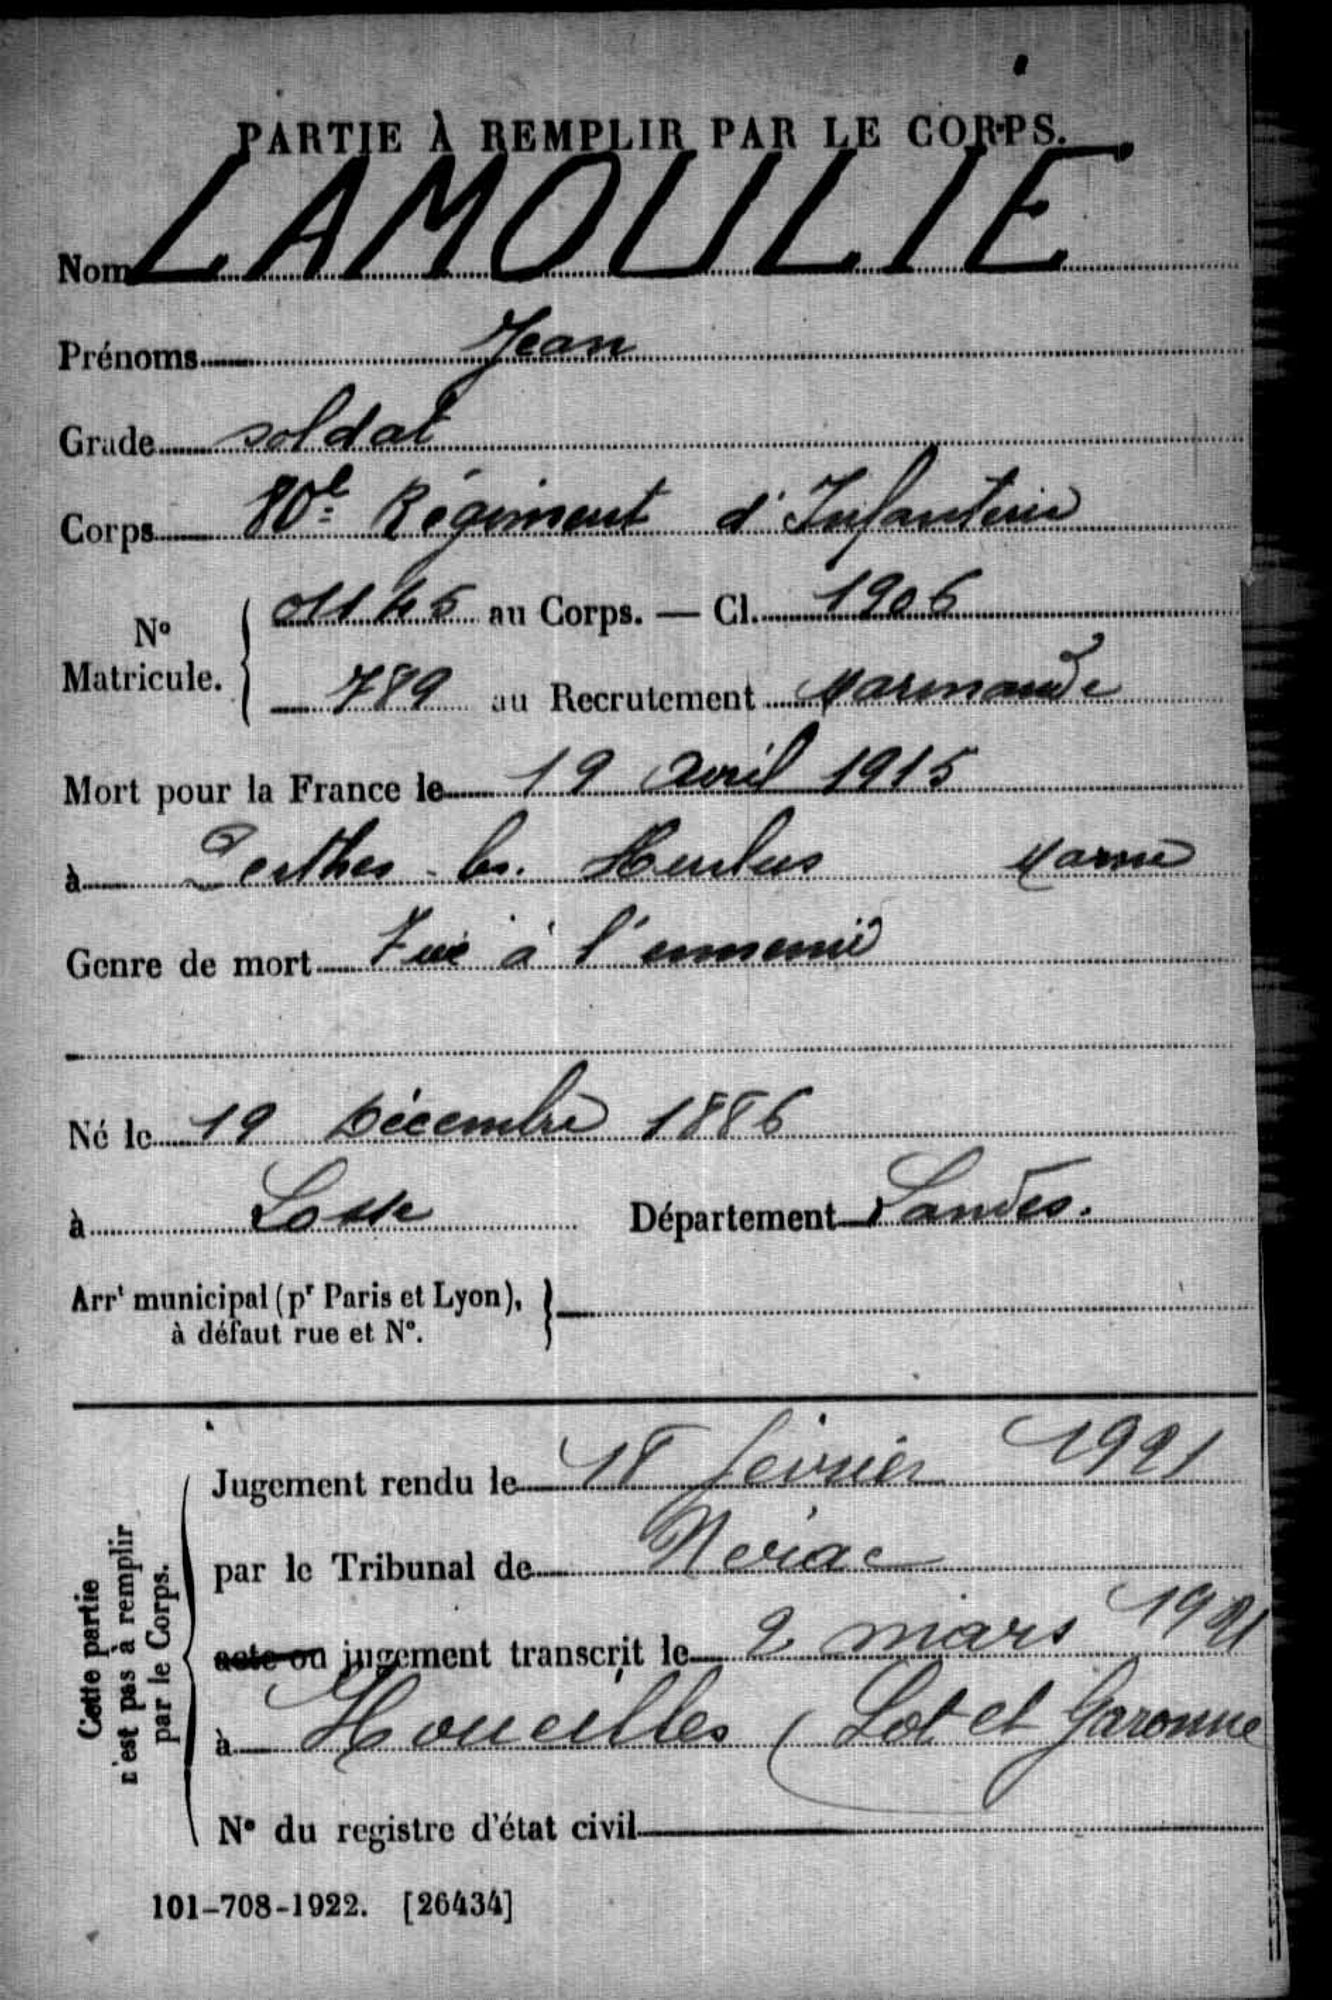 PARTIE À REMPLIR PAR LE CORPS.
Nom LAMOULIE
Prénoms Jean
Grade soldat
Corps 80e Régiment d'Infanterie
N° Matricule. { au Corps. — Cl. 1906
789 au Recrutement Marmande
Mort pour la France le 19 avril 1915
à Perthes-les-Hurlus Marne
Genre de mort Tué à l'ennemi
Né le 19 Décembre 1886
à Losse Département Landes.
Arrt municipal (pr Paris et Lyon), }
à défaut rue et N°.
Cette partie
n'est pas à remplir
par le Corps.
Jugement rendu le 18 février 1921
par le Tribunal de Nérac
acte ou jugement transcrit le 2 mars 1921
à Houeillès (Lot et Garonne
N° du registre d'état civil
101-708-1922. [26434]